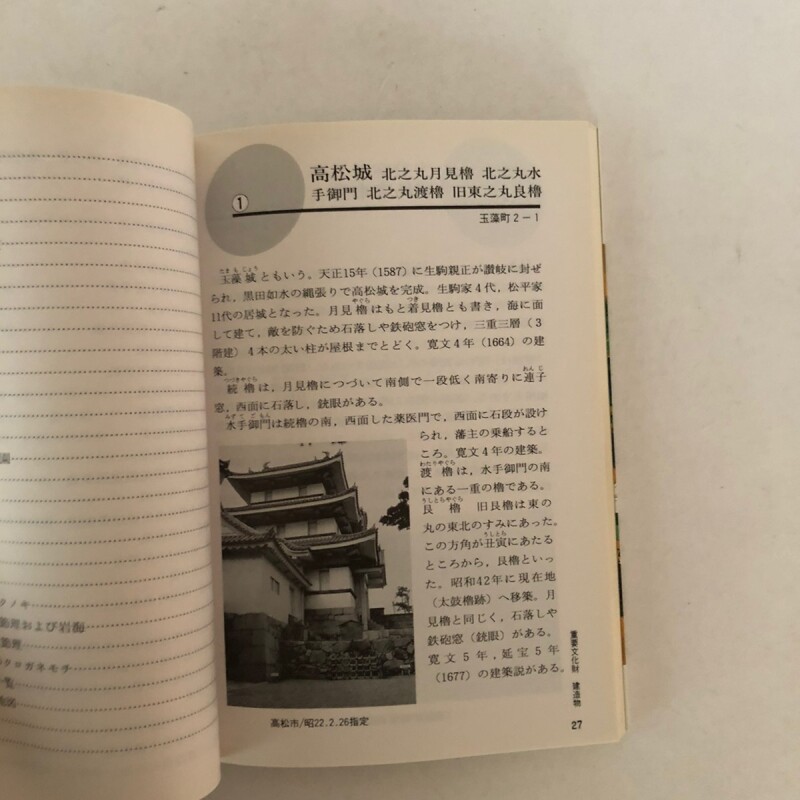 園
タノキ
節理および岩海
節理
クロガネモチ
一覧
地図
①
高松城 北之丸月見櫓 北之丸水
手御門 北之丸渡櫓 旧東之丸艮櫓
玉藻町2-1
たまもじょう
玉藻城ともいう。天正15年（1587）に生駒親正が讃岐に封ぜ
られ，黒田如水の縄張りで高松城を完成。生駒家4代，松平家
やぐら つき
11代の居城となった。月見櫓はもと着見櫓とも書き，海に面
して建て，敵を防ぐため石落しや鉄砲窓をつけ，三重三層（3
階建）4本の太い柱が屋根までとどく。寛文4年（1664）の建
築。
つづきやぐら れんじ
続櫓は，月見櫓につづいて南側で一段低く南寄りに連子
窓，西面に石落し，銃眼がある。
みずてごもん
水手御門は続櫓の南，西面した薬医門で，西面に石段が設け
られ，藩主の乗船すると
ころ。寛文4年の建築。
わたりやぐら
渡櫓は，水手御門の南
にある一重の櫓である。
うしとらやぐら
艮櫓 旧艮櫓は東の
丸の東北のすみにあった。
うしとら
この方角が丑寅にあたる
ところから，艮櫓といっ
た。昭和42年に現在地
（太鼓櫓跡）へ移築。月
見櫓と同じく，石落しや
鉄砲窓（銃眼）がある。
寛文5年，延宝5年
（1677）の建築説がある。
高松市/昭22.2.26指定
重要文化財 建造物
27